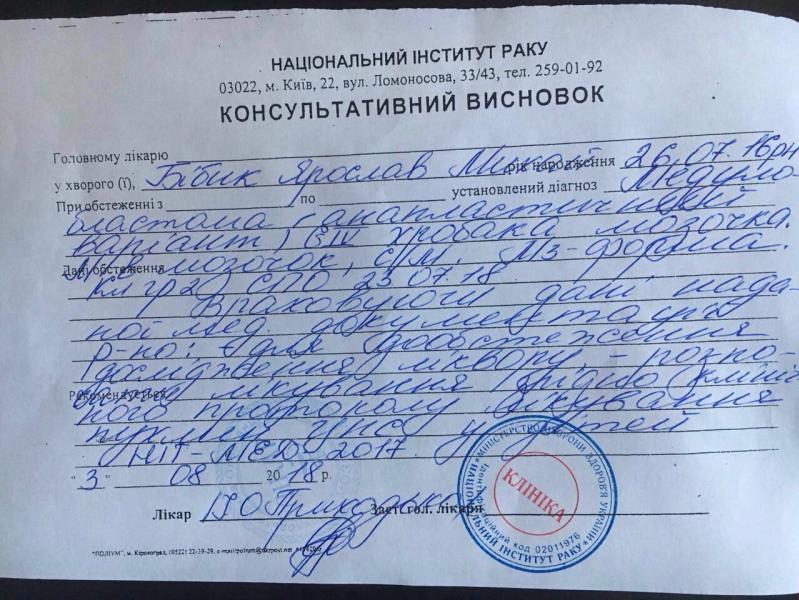 НАЦІОНАЛЬНИЙ ІНСТИТУТ РАКУ
03022, м. Київ, 22, вул. Ломоносова, 33/43, тел. 259-01-92
КОНСУЛЬТАТИВНИЙ ВИСНОВОК
Головному лікарю
у хворого (ї), Бібик Ярослав рік народження 26.07.16рн
При обстеженні з по установлений діагноз Медуло
бластома (анапластичний
варіант) хробака мозочка.
Дані обстеження мозочок, с/м. М3-форма.
Кл гр 2) СПО 23.07.18.
Враховуючи дані нада-
ної мед. документації
р-но: для дообстеження
дослідження ліквору, - розпо-
Рекомендується лікування згідно клініч
ного протоколу лікування
пухлин ЦНС у дітей
HIT-MED 2017.
"3" 08 2018 р.
Лікар Заст. гол. лікаря
МІНІСТЕРСТВО ОХОРОНИ ЗДОРОВ'Я УКРАЇНИ
НАЦІОНАЛЬНИЙ ІНСТИТУТ РАКУ
Ідентифікаційний код 02011976
КЛІНІКА
"ПОЛІУМ", м. Кіровоград, (0522) 22-39-29,